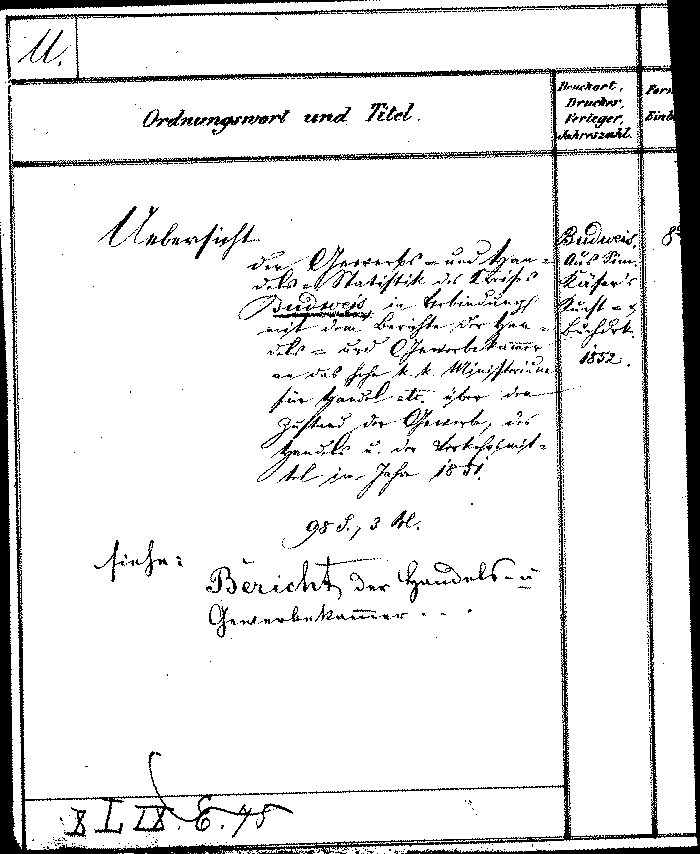 U.
Ordnungswort und Titel.
Druckort,
Drucker,
Verleger,
Jahreszahl.
Form
Einb
Uebersicht
der Gewerbs- und Han-
dels-Statistik des Kreises
Budweis, in Verbindung
mit dem Berichte der Han-
dels- und Gewerbekammer
an das hohe k. k. Ministerium
für Handel etc. über den
Zustand der Gewerbe, des
Handels u. der Verkehrsmit-
tel im Jahr 1851.
98 S., 3 Bl.
Budweis,
Aus Sim.
Käser's
Kunst- u
Buchdrk.
1852.
8°
siehe:
Bericht der Handels- u
Gewerbekammer . . .
E. 75